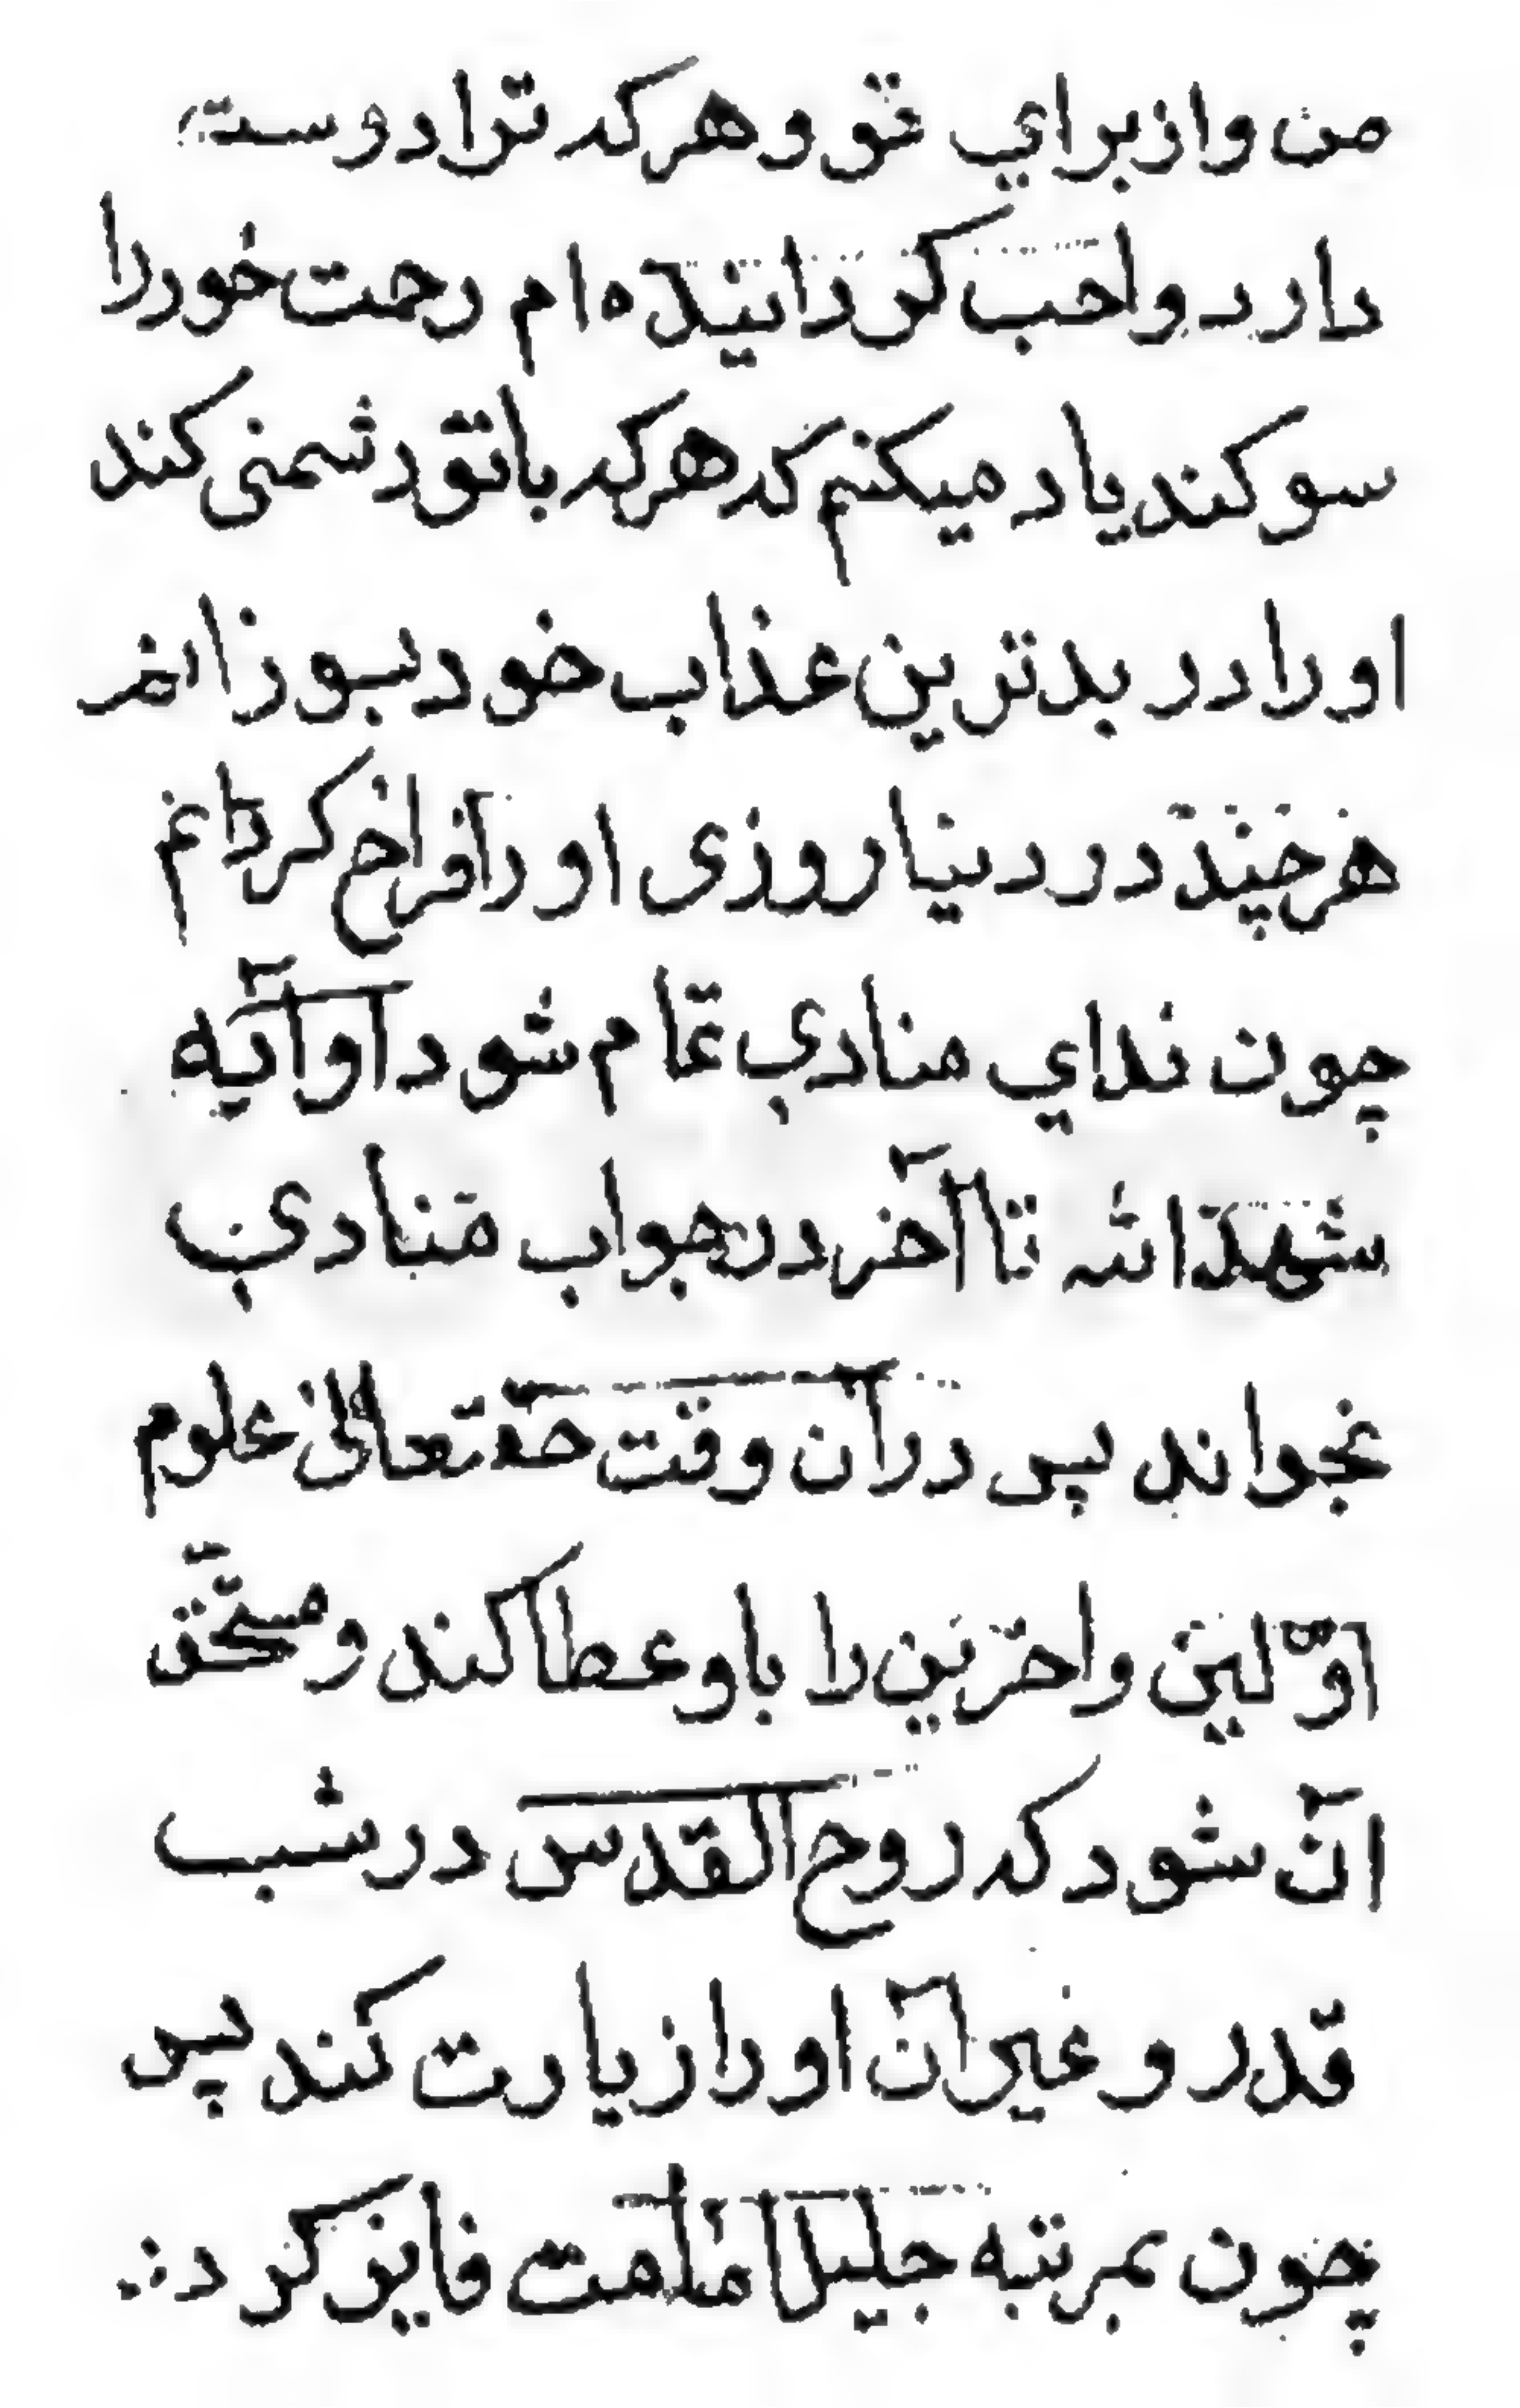 من واز براي تو و هر که ترا دوست
دارد واجب کردانیده ام رحمت خود را
سوکند یاد میکنم که هر که با تو دشمنی کند
او را در بدترین عذاب خود بسوزانم
هر چند در دنیا روزی او را فراخ کردانم
چون نداي منادي تمام شود او آیه
شهد الله تا آخر در جواب منادي
بخواند پس در آن وقت حقتعالی علوم
اوّلین واخرین را باو عطا کند و مستحّق
آن شود که روح القدس در شب
قدر و غیر آن او را زیارت کند پس
چون بمرتبه جلیل امامت فایز کردد